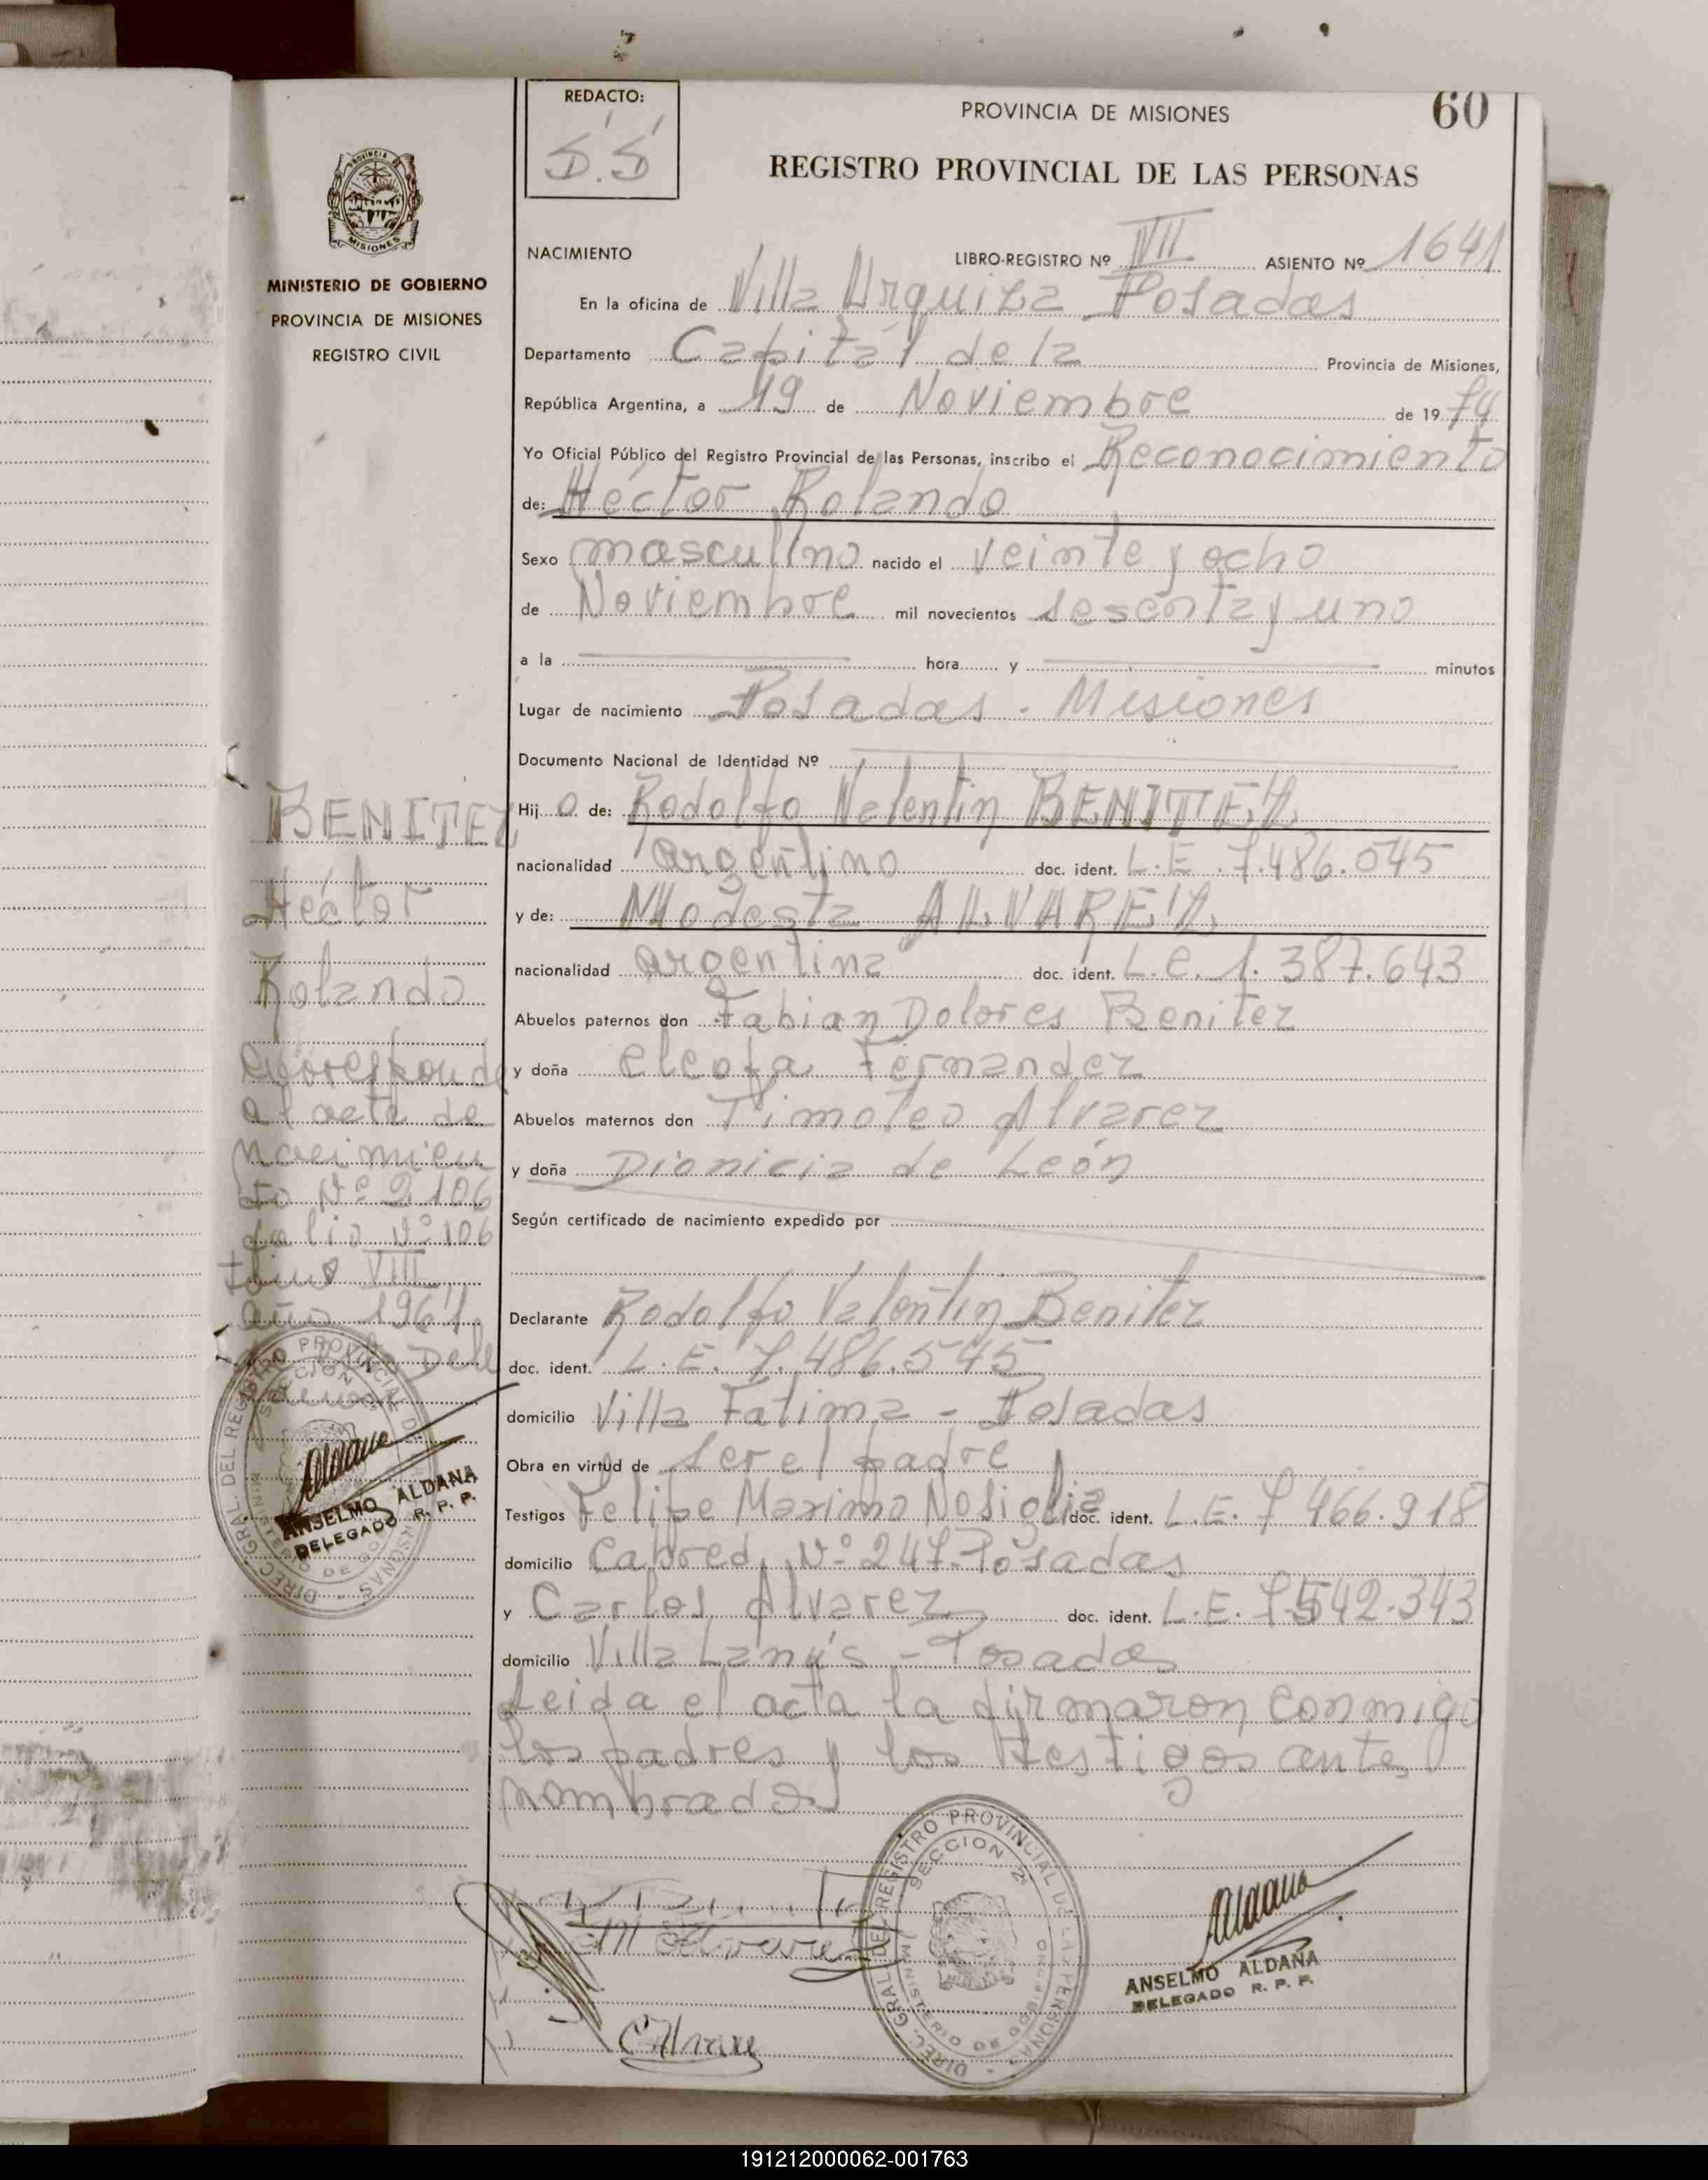 REDACTO:
S.S
PROVINCIA DE MISIONES
60
REGISTRO PROVINCIAL DE LAS PERSONAS
PROVINCIA DE
MISIONES
MINISTERIO DE GOBIERNO
PROVINCIA DE MISIONES
REGISTRO CIVIL
NACIMIENTO LIBRO-REGISTRO Nº VII ASIENTO Nº 1641
En la oficina de Villa Urquiza Posadas
Departamento Capital de la Provincia de Misiones,
República Argentina, a 19 de Noviembre de 1974
Yo Oficial Público del Registro Provincial de las Personas, inscribo el Reconocimiento
de: Héctor Rolando
Sexo masculino nacido el veinte y ocho
de Noviembre mil novecientos sesenta y uno
a la hora y minutos
Lugar de nacimiento Posadas - Misiones
Documento Nacional de Identidad Nº
Hijo de: Rodolfo Valentin BENITEZ
nacionalidad argentino doc. ident. L.E. 7.486.545
y de: Modesta ALVAREZ
nacionalidad argentina doc. ident. L.C. 1.387.643
Abuelos paternos don Fabian Dolores Benitez
y doña Cleofa Fernandez
Abuelos maternos don Timoteo Alvarez
y doña Dionicia de León
Según certificado de nacimiento expedido por
Declarante Rodolfo Valentin Benitez
doc. ident. L.E. 7.486.545
domicilio Villa Fatima - Posadas
Obra en virtud de ser el padre
Testigos Felipe Maximo Nosiglia doc. ident. L.E. 7 466.918
domicilio Cabred Nº 247 Posadas
y Carlos Alvarez doc. ident. L.E. 7.542.343
domicilio Villa Lanús - Posadas
Leida el acta la firmaron conmigo
los padres y los testigos ante
nombrados
BENITEZ
Héctor
Rolando
Corresponde
al acta de
nacimien
to Nº 2106
folio Nº 106
tomo VIII
año 1961
DIREC. GRAL. DEL REGISTRO PROVINCIAL DE LAS PERSONAS
SECCION
MINISTERIO DE GOBIERNO
Aldana
ANSELMO ALDANA
DELEGADO R. P. P.
M Alvarez
C Alvarez
DIREC. GRAL. DEL REGISTRO PROVINCIAL DE LAS PERSONAS
SECCION 2ª
MINISTERIO DE GOBIERNO
Aldana
ANSELMO ALDANA
DELEGADO R. P. P.
191212000062-001763